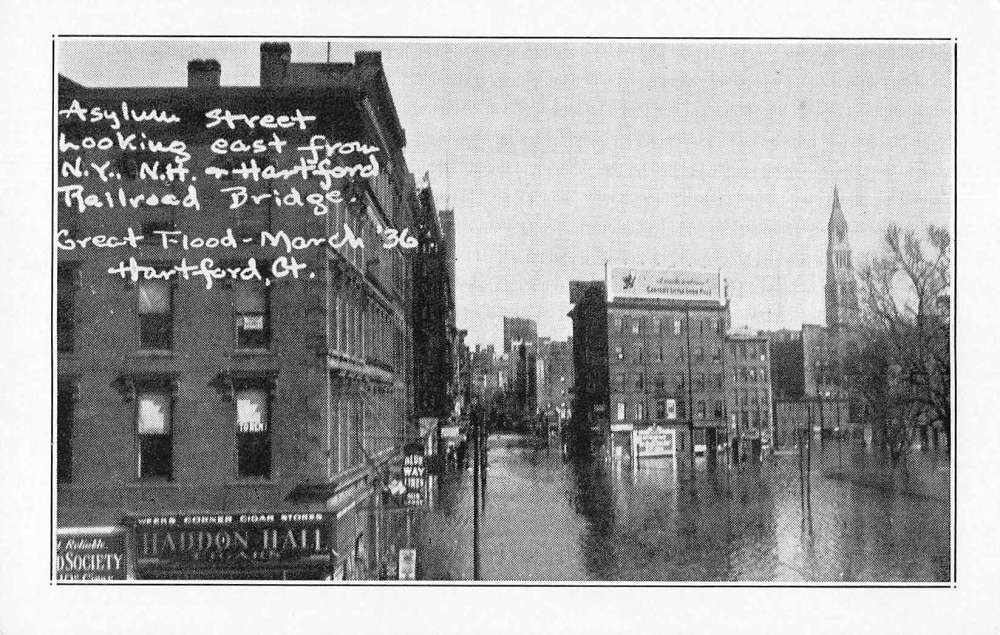 Asylum Street
Looking east from
N.Y., N.H. & Hartford
Railroad Bridge.
Great Flood - March '36
Hartford, Ct.
TO RENT
WEEKS CORNER CIGAR STORES
HADDON HALL
CIGARS
Reliable
SOCIETY
CARTER'S LITTLE LIVER PILLS
WAY